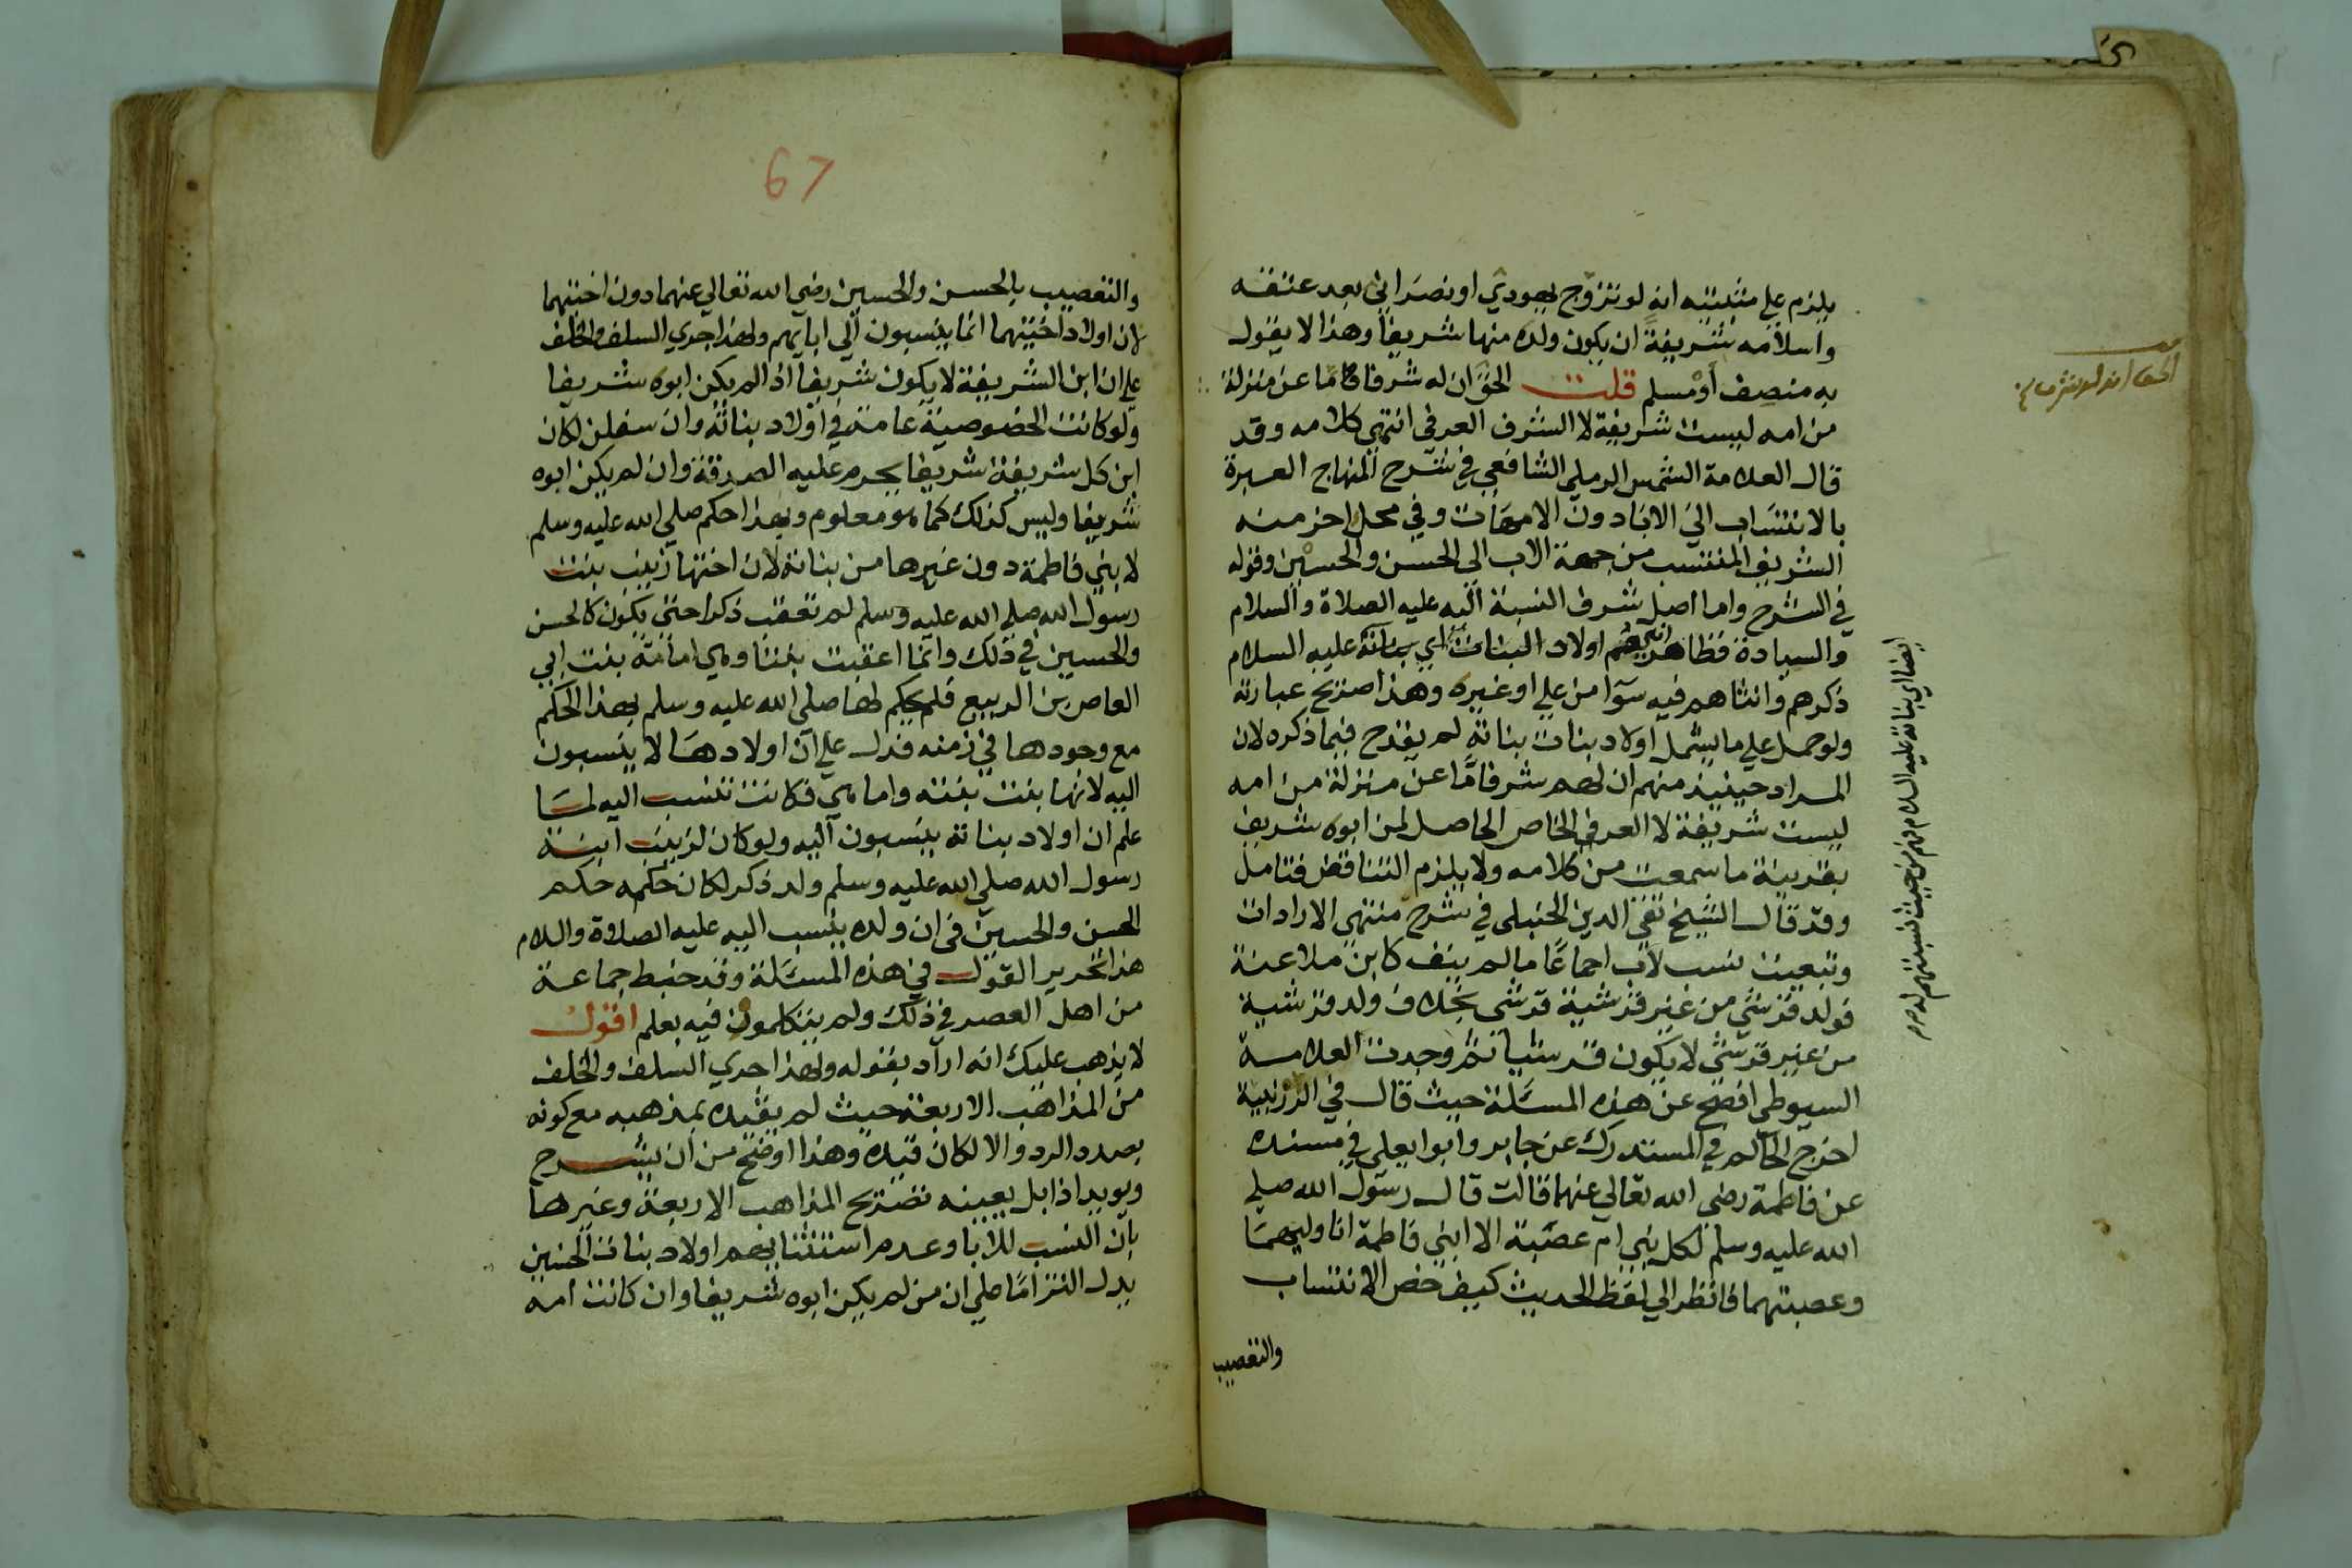 يلزم علي مثبتيه انه لو تزوج يهودي او نصراني بعد عتقه
واسلامه شريفة ان يكون ولده منها شريفا وهذا لا يقول
به منصف او مسلم قلت الحق ان له شرفا ما عن منزلة
من امه ليست شريفة لا الشرف العرفي انتهي كلامه وقد
قال العلامة الشمس الرملي الشافعي في شرح المنهاج العبرة
بالانتساب الي الابا دون الامهات وفي محل اخر منه
الشريف المنتسب من جهة الاب الي الحسن والحسين وقوله
في الشرح واما اصل شرف النسبة اليه عليه الصلاة والسلام
والسيادة فظاهر اولاد البنات اي بناته عليه السلام
ذكرهم وانثاهم فيه سوا من علي او غيره وهذا صريح عبارته
ولو حمل علي ما يشمل اولاد بنات بناته لم يقدح فيما ذكره لان
المراد حينيذ منهم ان لهم شرفا ما عن منزلة من امه
ليست شريفة لا العرفي الخاص الحاصل لمن ابوه شريف
بقرينة ما سمعت من كلامه ولا يلزم التناقض فتامل
وقد قال الشيخ تقي الدين الحنبلي في شرح منتهي الارادات
وتبعيت نسب لاب اجماعا ما لم ينف كابن ملاعنة
فولد قرشي من غير قرشية قرشي بخلاف ولد قرشية
من غير قرشي لا يكون قرشيا ثم وجدت العلامة
السيوطي افصح عن هذه المسئلة حيث قال في الزرنبية
اخرج الحاكم في المستدرك عن جابر وابو يعلي في مسنده
عن فاطمة رضي الله تعالي عنهما قالت قال رسول الله صلي
الله عليه وسلم لكل بني ام عصبة الا ابني فاطمة انا وليهما
وعصبتهما فانظر الي لفظ الحديث كيف خص الانتساب
والتعصيب
ايضا اي بناته عليه السلام من حيث
67
والتعصيب بالحسن والحسين رضي الله تعالي عنهما دون اختيهما
لان اولاد اختيهما انما ينسبون الي ابايهم ولهذا جري السلف والخلف
علي ان ابن الشريفة لا يكون شريفا اذا لم يكن ابوه شريفا
ولو كانت الخصوصية عامة في اولاد بناته وان سفلن لكان
ابن كل شريفة شريفا يحرم عليه الصدقة وان لم يكن ابوه
شريفا وليس كذلك كما هو معلوم وبهذا حكم صلي الله عليه وسلم
لابني فاطمة دون غيرها من بناته لان اختها زينب بنت
رسول الله صلي الله عليه وسلم لم تعقب ذكرا حتي يكون كالحسن
والحسين في ذلك وانما اعقبت بنتا وهي امامة بنت ابي
العاص بن الربيع فلم يحكم لها صلي الله عليه وسلم بهذا الحكم
مع وجودها في زمنه فدل علي ان اولادها لا ينسبون
اليه لانها بنت بنته واما هي فكانت تنسب اليه لما
علم ان اولاد بناته ينسبون اليه ولو كان لزينب ابنة
رسول الله صلي الله عليه وسلم ولد ذكر لكان حكمه حكم
الحسن والحسين في ان ولده ينسب اليه عليه الصلاة والسلام
هذا تحرير القول في هذه المسئلة وقد خبط جماعة
من اهل العصر في ذلك ولم يتكلموا فيه بعلم اقول
لا يذهب عليك انه اراد بقوله ولهذا جري السلف والخلف
من المذاهب الاربعة حيث لم يقيده بمذهبه مع كونه
بصدد الرد والا لكان قيده وهذا اوضح من ان يشرح
ويويد اذا بل يعينه تصريح المذاهب الاربعة وغيرها
بان النسب للابا وعدم استثنايهم اولاد بنات الحسنين
يدل التزاما علي ان من لم يكن ابوه شريفا وان كانت امه